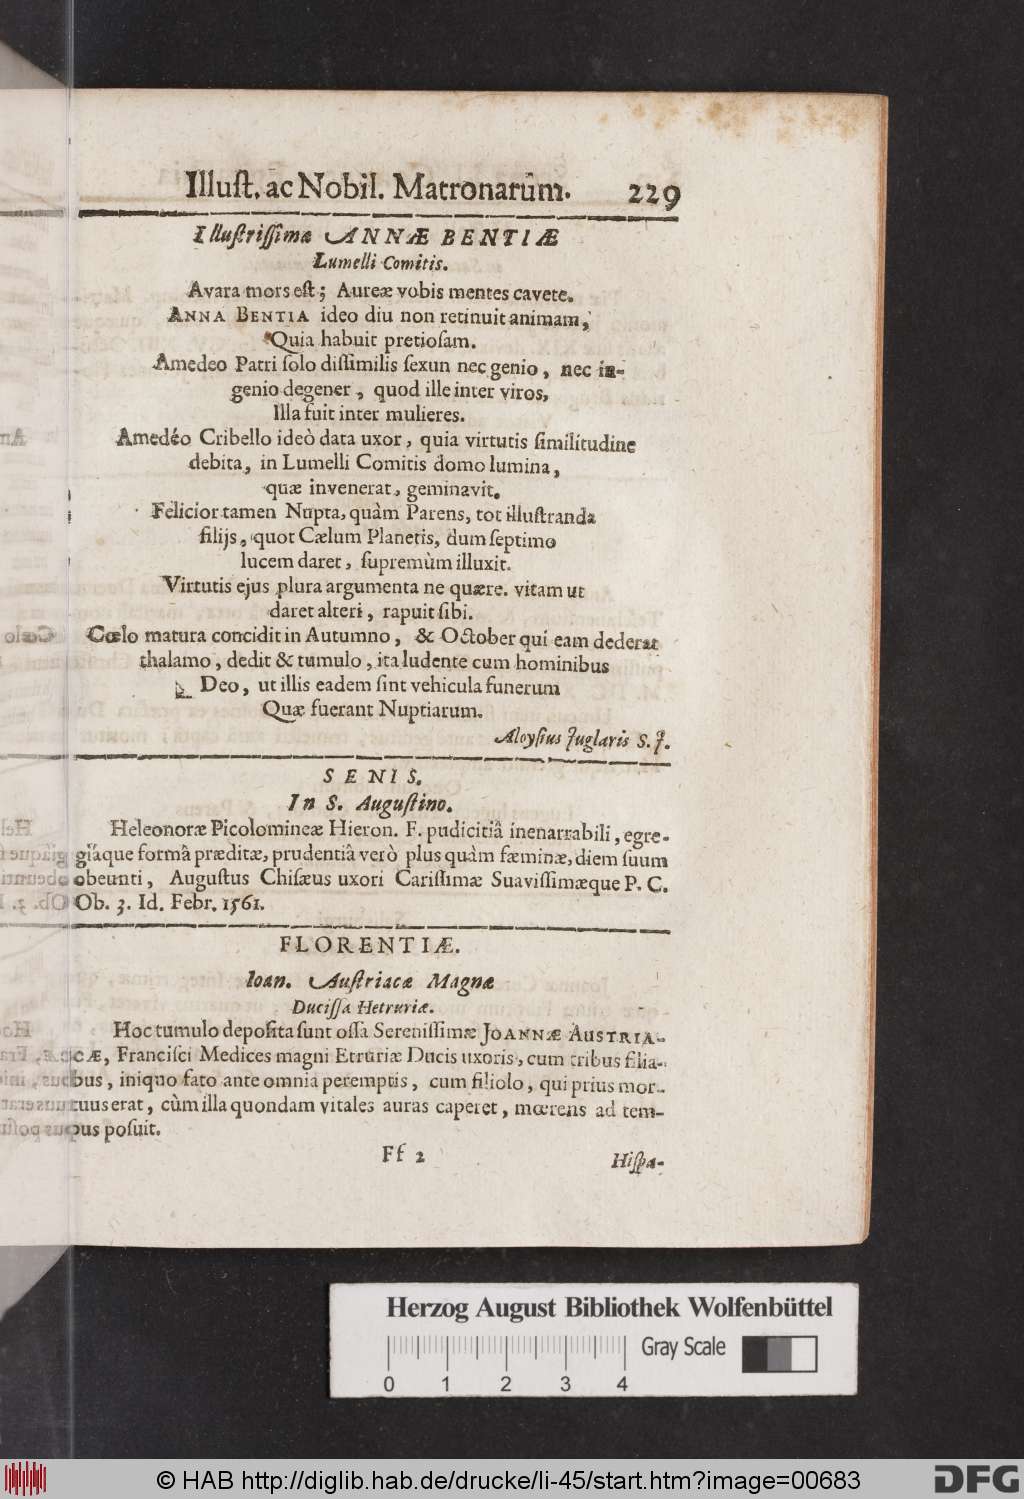 Illuſt. ac Nobil. Matronarum. 229
Illuſtriſſimæ ANNÆ BENTIÆ
Lumelli Comitis.
Avara mors eſt; Aureæ vobis mentes cavete.
ANNA BENTIA ideo diu non retinuit animam,
Quia habuit pretioſam.
Amedeo Patri ſolo diſſimilis ſexun nec genio, nec in-
genio degener, quod ille inter viros,
Illa fuit inter mulieres.
Amedéo Cribello ideò data uxor, quia virtutis ſimilitudine
debita, in Lumelli Comitis domo lumina,
quæ invenerat, geminavit.
Felicior tamen Nupta, quàm Parens, tot illuſtranda
filijs, quot Cælum Planetis, dum ſeptimo
lucem daret, ſupremùm illuxit.
Virtutis ejus plura argumenta ne quære. vitam ut
daret alteri, rapuit ſibi.
Cœlo matura concidit in Autumno, & October qui eam dederat
thalamo, dedit & tumulo, ita ludente cum hominibus
Deo, ut illis eadem ſint vehicula funerum
Quæ fuerant Nuptiarum.
Aloyſius Juglaris S. J.
SENIS.
In S. Auguſtino.
Heleonoræ Picolomineæ Hieron. F. pudicitiâ inenarrabili, egre-
giâque formâ præditæ, prudentiâ verò plus quàm fæminæ, diem ſuum
obeunti, Auguſtus Chiſæus uxori Cariſſimæ Suaviſſimæque P. C.
Ob. 3. Id. Febr. 1561.
FLORENTIÆ.
Ioan. Auſtriacæ Magnæ
Duciſſa Hetruriæ.
Hoc tumulo depoſita ſunt oſſa Sereniſſimæ JOANNÆ AUSTRIA-
CÆ, Franciſci Medices magni Etruriæ Ducis uxoris, cum tribus filia-
bus, iniquo fato ante omnia peremptis, cum filiolo, qui prius mor-
tuus erat, cùm illa quondam vitales auras caperet, mœrens ad tem-
pus poſuit.
Ff 2 Hiſpa-
Herzog August Bibliothek Wolfenbüttel
Gray Scale
0 1 2 3 4
© HAB http://diglib.hab.de/drucke/li-45/start.htm?image=00683
DFG